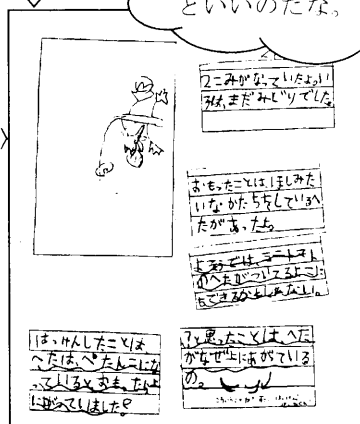 といいのだな。
2こみがなっていたよ。い
ろは、まだみどりでした。
おもったことは、ほしみた
いなかたちをしているへ
たがあったよ。
よそうでは、ミニトマト
のへたがついてるよこに
もできるかもしれない。
はっけんしたことは
へたは、ぺたんこにな
っているとおもったよ
にがっていました。
アと思ったことは、へた
がなぜ上にあがっている
の。